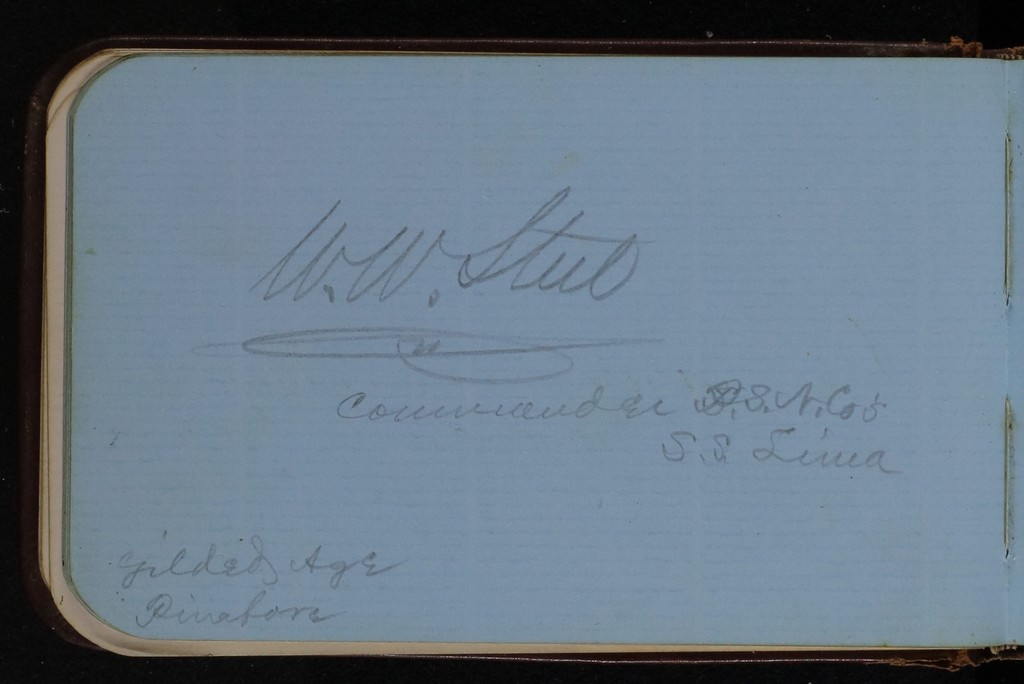 W. W. Steel
Commander P.S.N.Co's
S.S. Lima
Gilded Age
Pinafore